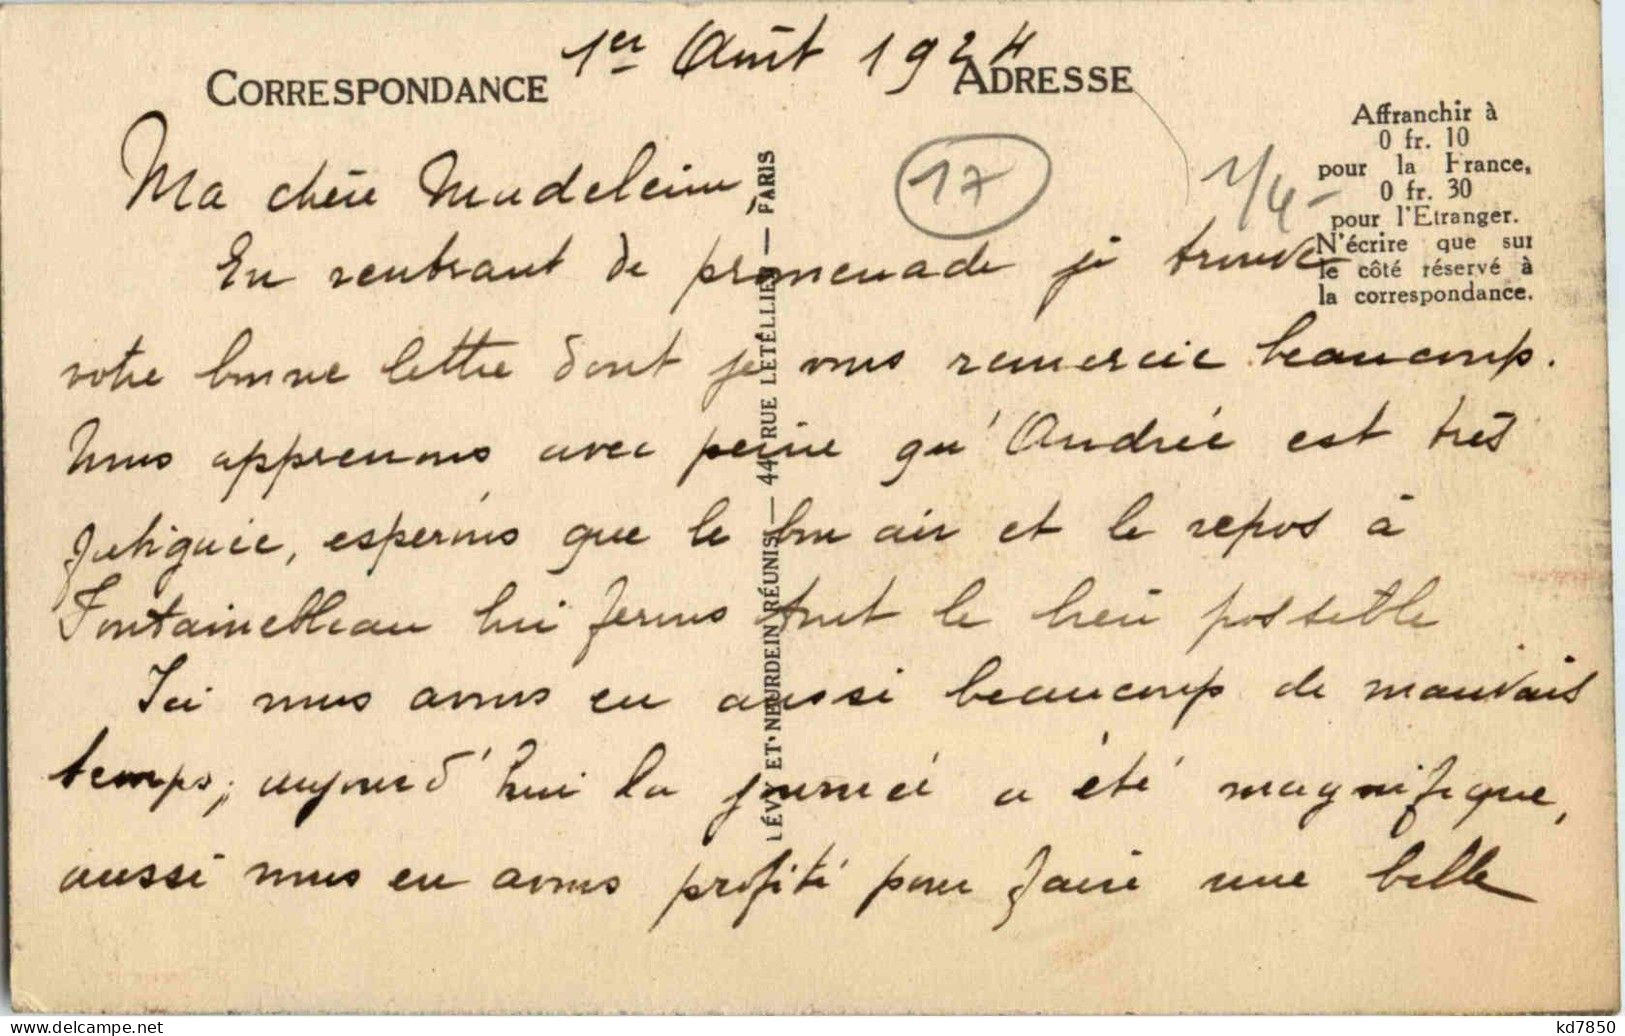 1er Août 1924
CORRESPONDANCE
ADRESSE
Affranchir à
0 fr. 10
pour la France,
0 fr. 30
pour l'Etranger.
N'écrire que sur
le côté réservé à
la correspondance.
17
1/4-
Ma chère Madeleine,
En rentrant de promenade je trouve
votre bonne lettre dont je vous remercie beaucoup.
Nous apprenons avec peine qu'Andrée est très
fatiguée, esperons que le bon air et le repos à
Fontainebleau lui ferons tout le bien possible
Ici nous avons eu aussi beaucoup de mauvais
temps; aujourd'hui la journée a été magnifique,
aussi nous en avons profité pour faire une belle
LÉVY ET NEURDEIN RÉUNIS — 44, RUE LETELLIER — PARIS
www.delcampe.net
kd7850